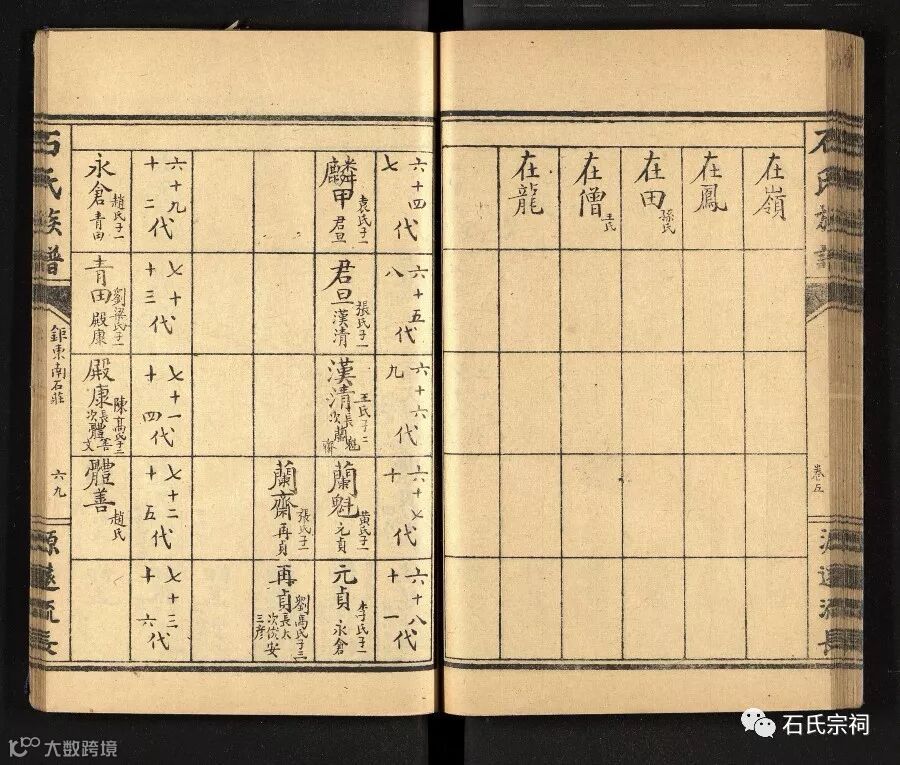 石氏族譜
卷五
源遠流長
在嶺
在鳳
在田 孫氏
在僧 王氏
在龍
六十四代
七
麟甲 袁氏子一 君旦
六十五代
八
君旦 張氏子一 漢清
六十六代
九
漢清 王氏子二 長蘭魁 次蘭齋
六十七代
十
蘭魁 黃氏子一 元貞
蘭齋 張氏子一 再貞
六十八代
十一
元貞 李氏子一 永倉
再貞 劉馮氏子三
六十九代
十二
永倉 趙氏子一 青田
七十代
十三
青田 劉梁氏子一 殿康
七十一代
十四
殿康 陳高氏子二 長體善 次體文
七十二代
十五
體善 趙氏
七十三代
十六
石氏族譜
鉅東南石莊
六九
源遠流長
石氏宗祠
大数跨境